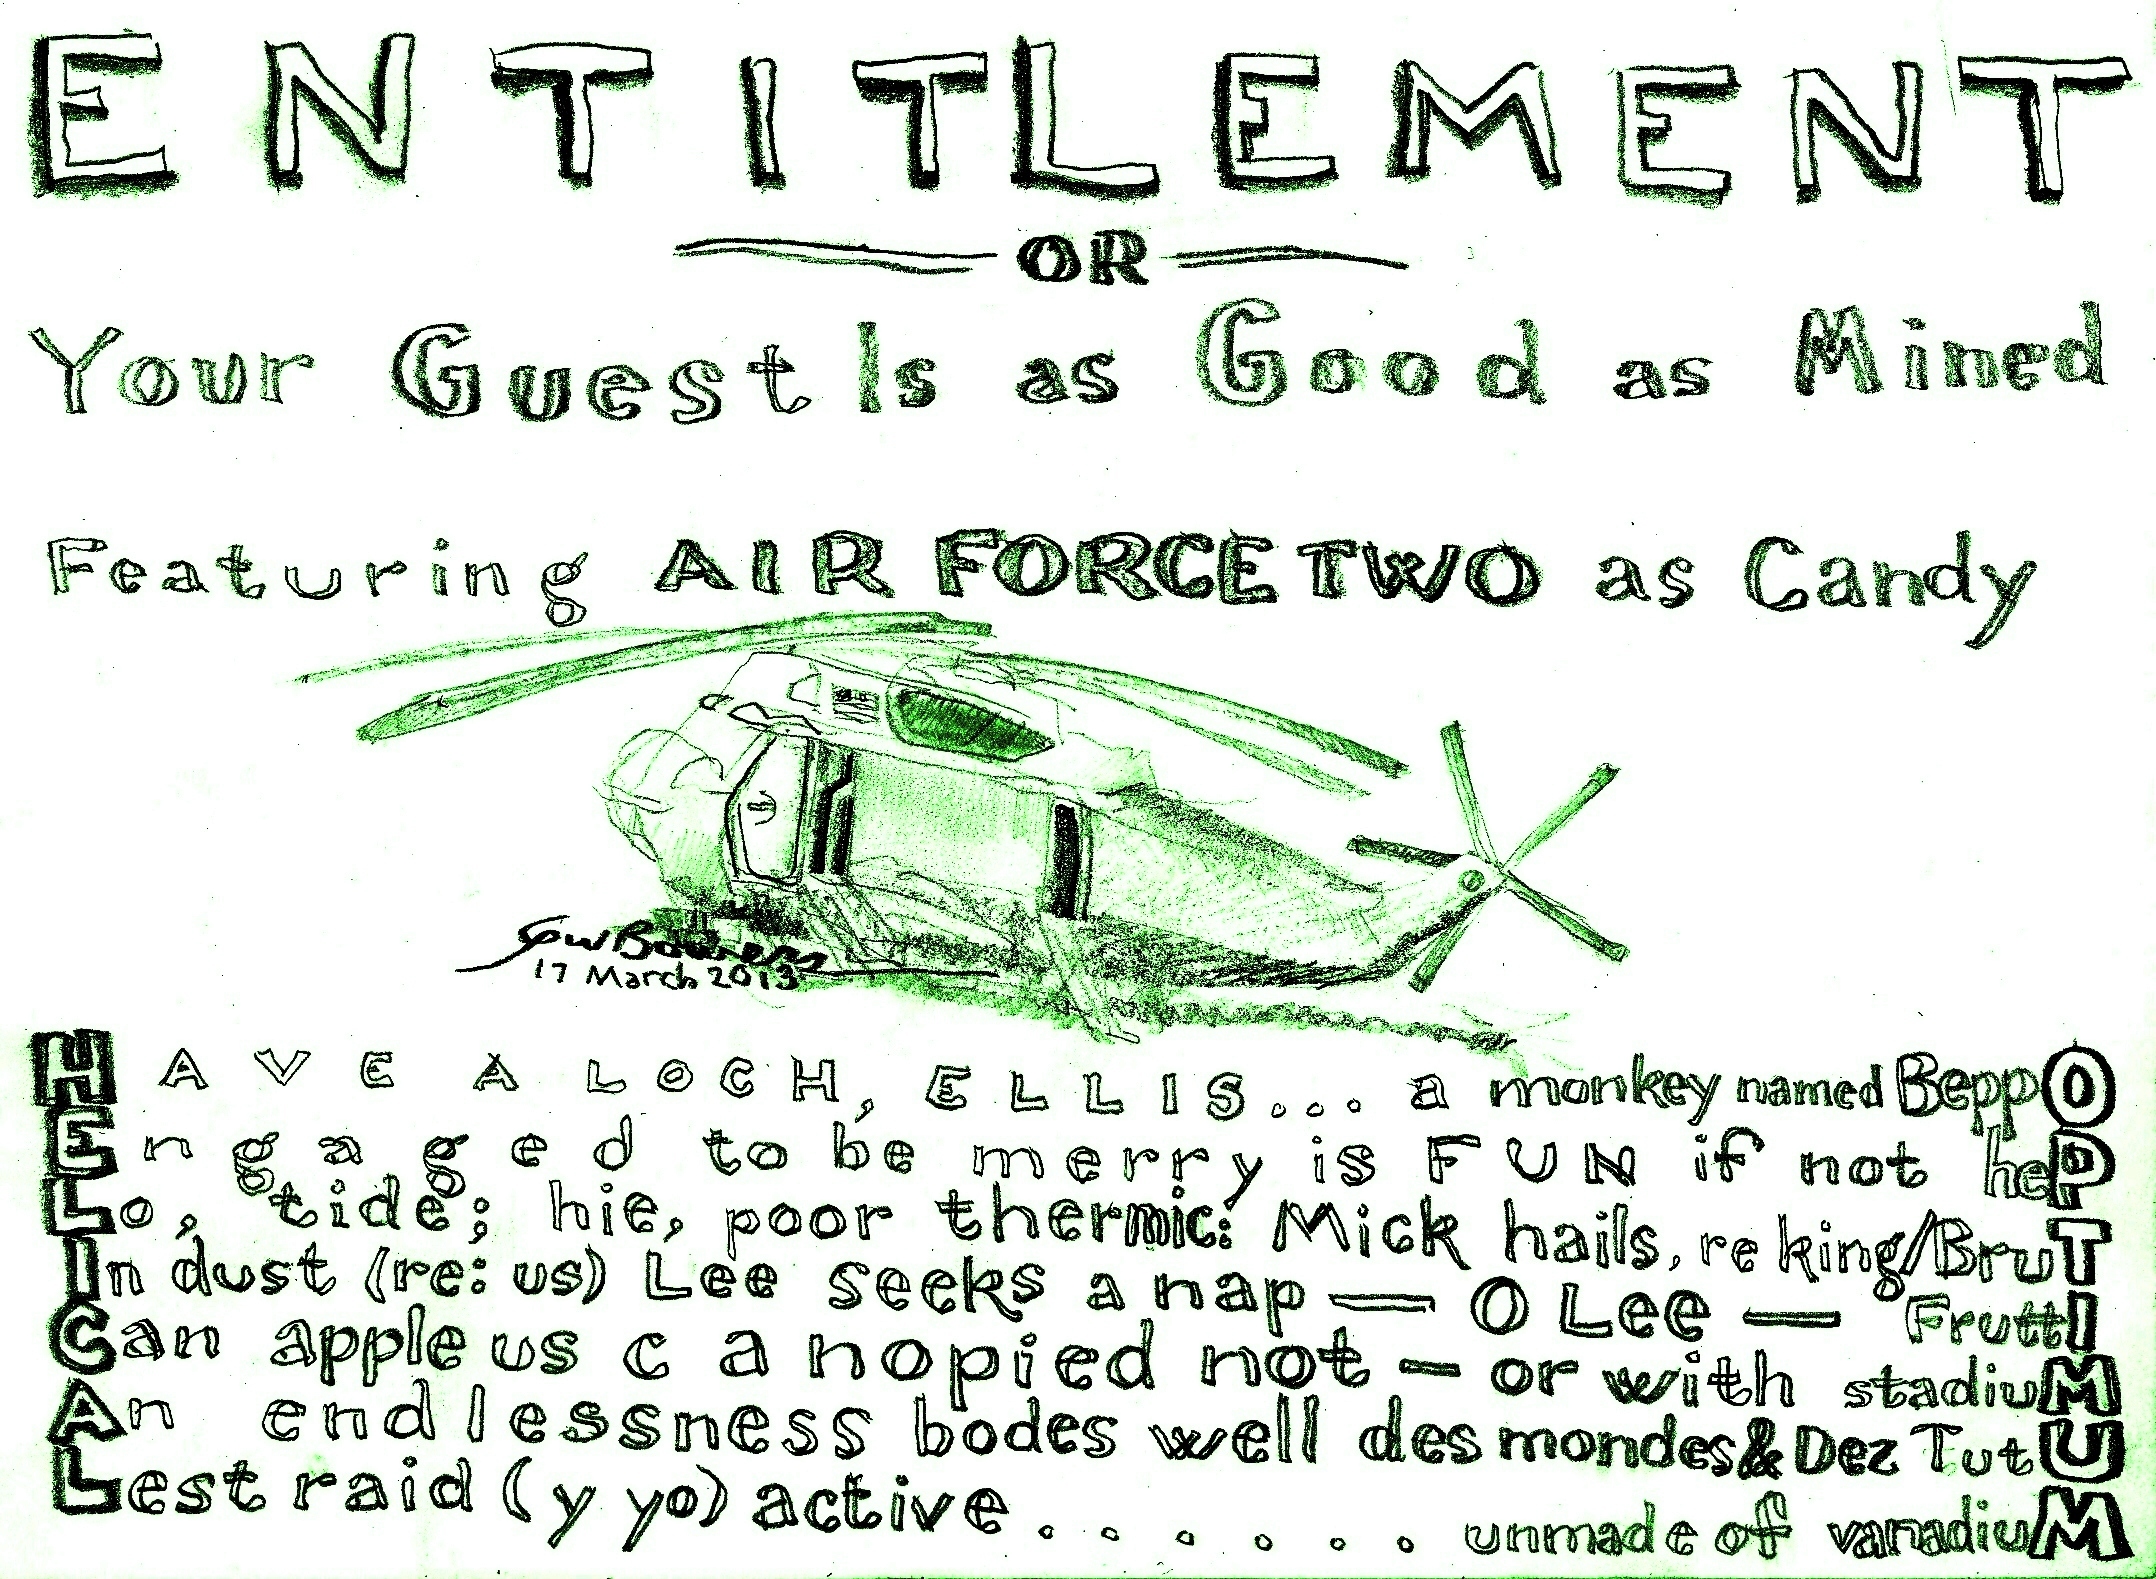 ENTITLEMENT
OR
Your Guest Is as Good as Mined
Featuring AIR FORCE TWO as Candy
17 March 2013
HAVE A LOCH, ELLIS... a monkey named BeppO
Engaged to be merry is FUN if not heP
Lo, tide; hie, poor thermic: Mick hails, re king/BruT
In dust (re: us) Lee seeks a nap — O Lee — FruttI
Can apple us c a nopied not - or with stadiuM
An endlessness bodes well des mondes & Dez TutU
Lest raid (y yo) active....... unmade of vanadiuM